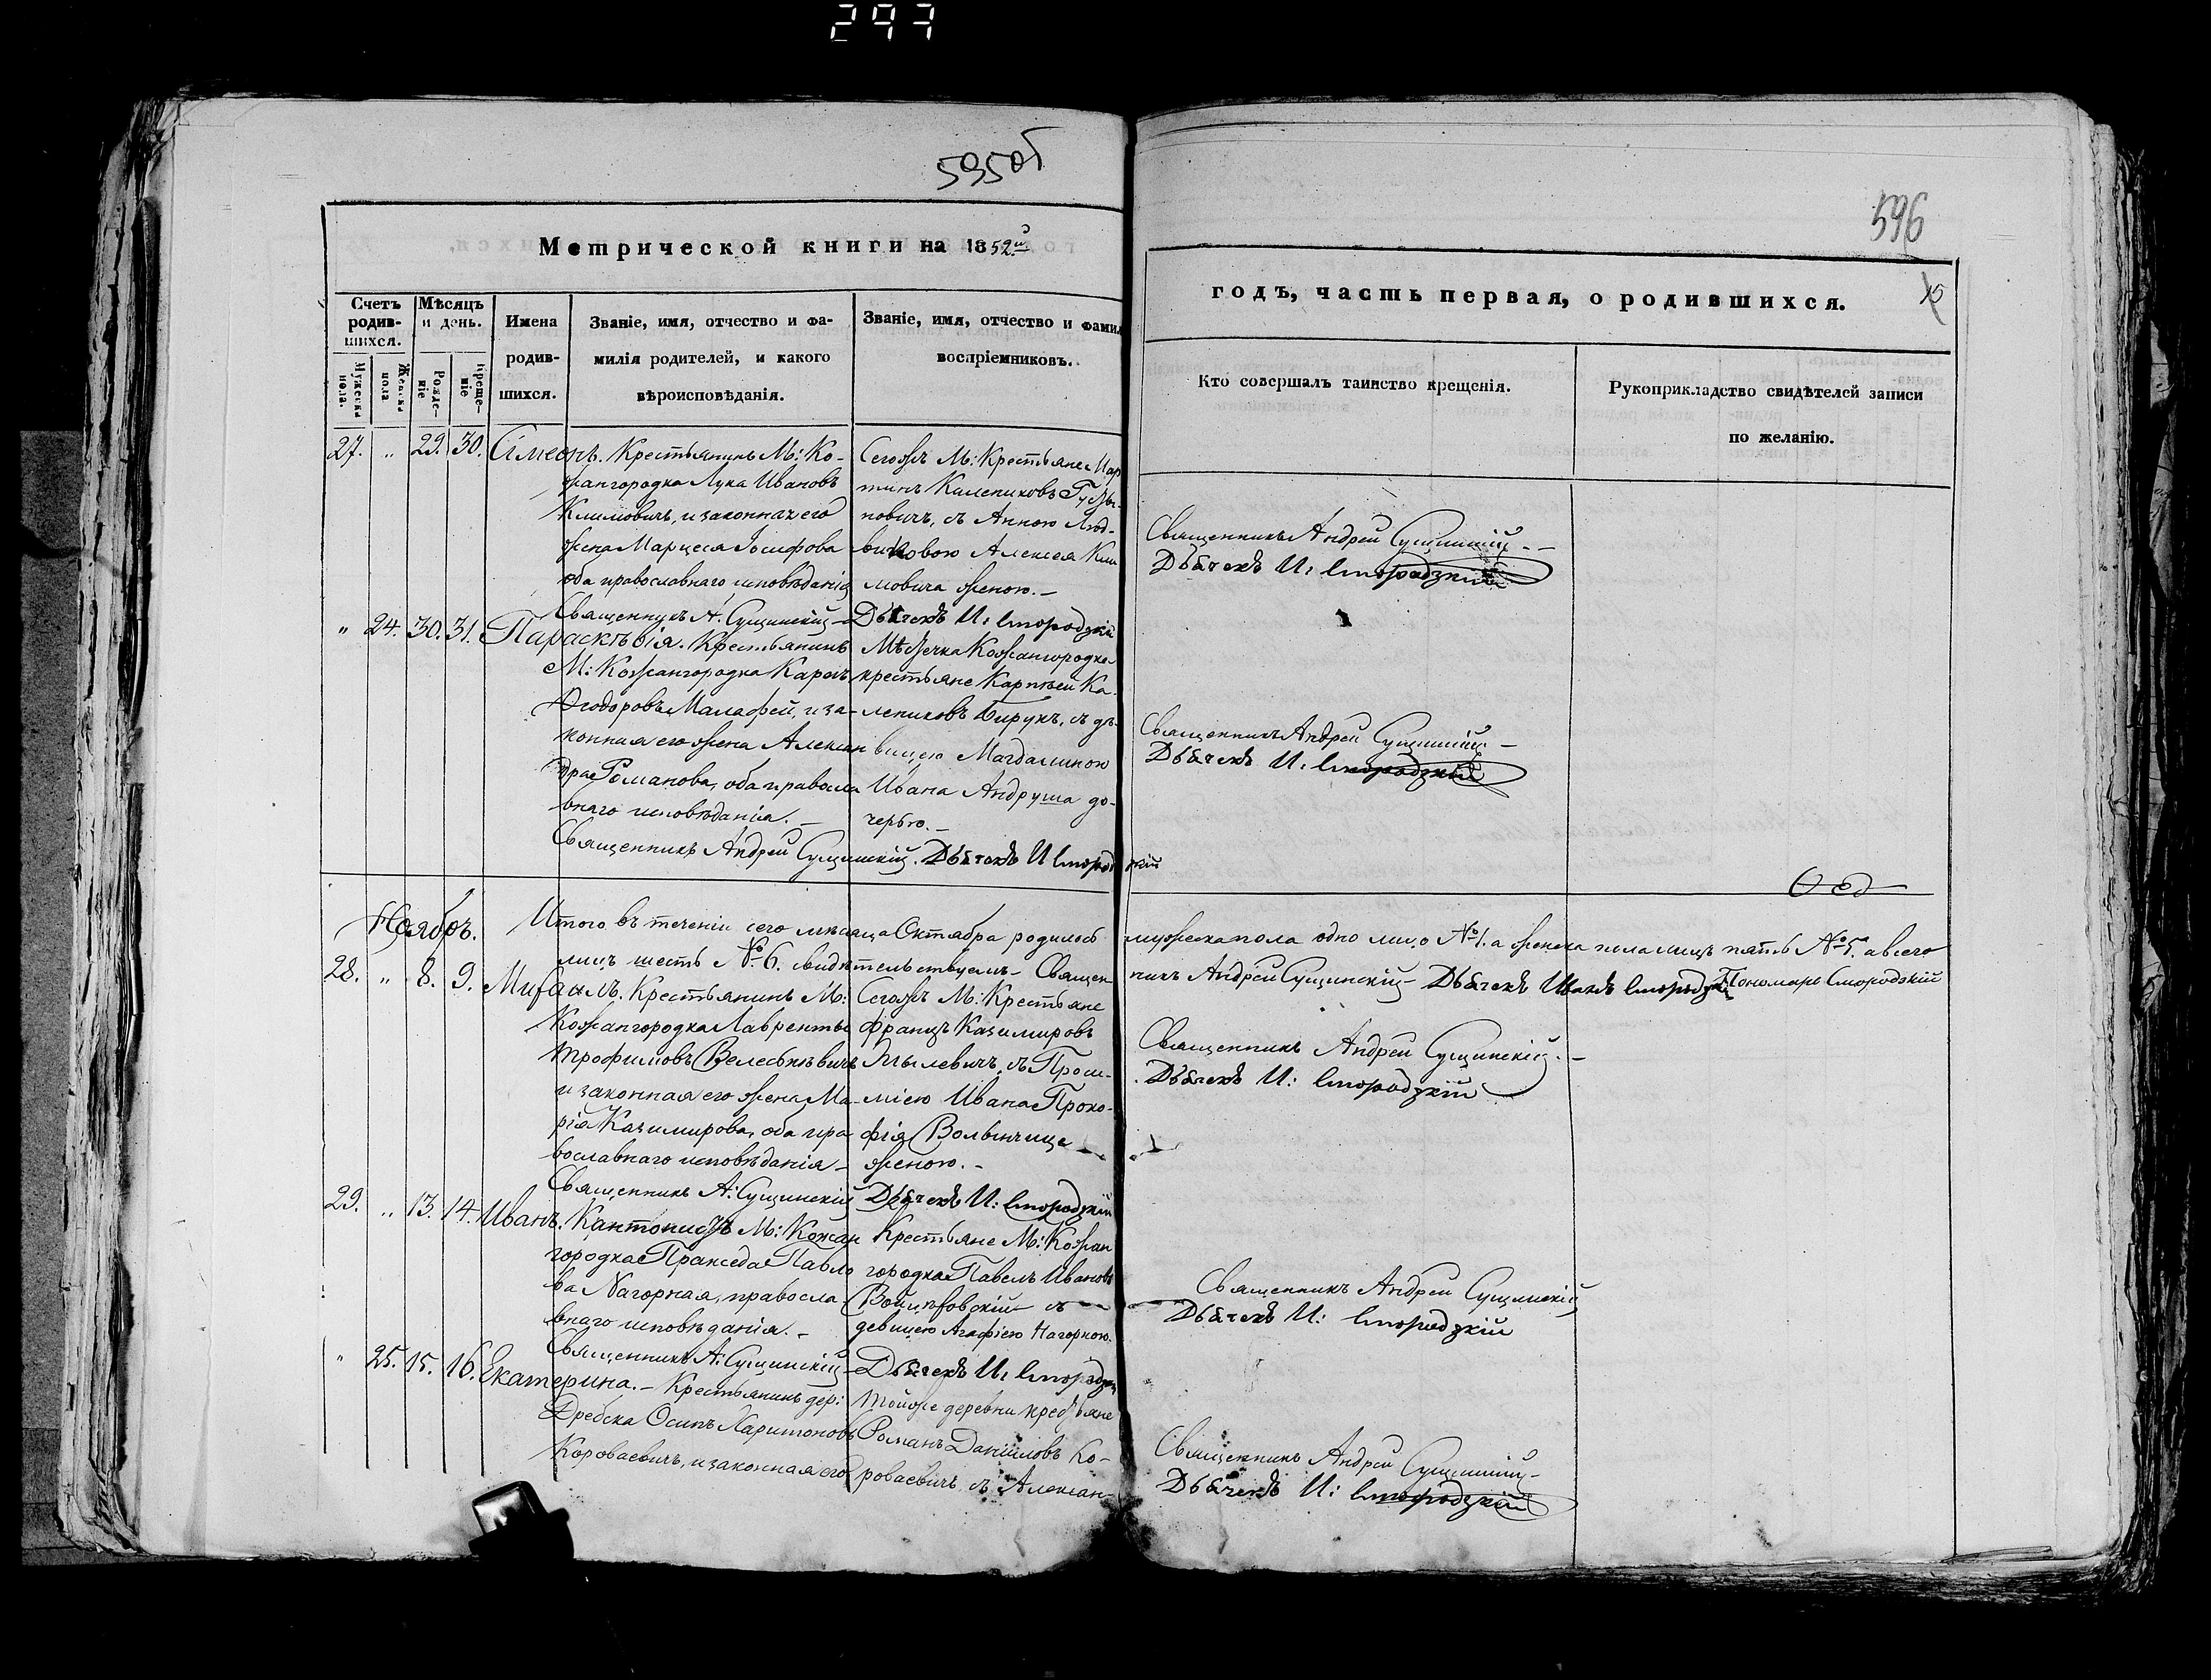 297
595об
596
15
Метрической книги на 1852й
годъ, часть первая, о родившихся.
Счетъ родив-
шихся.
Мужеска пола.
Женска пола
Мѣсяцъ
и день.
Рожде-
ніе
Креще-
ніе
Имена
родив-
шихся.
Званіе, имя, отчество и фа-
милія родителей, и какого
вѣроисповѣданія.
Званіе, имя, отчество и фамил
воспріемниковъ.
Кто совершалъ таинство крещенія.
Рукоприкладство свидѣтелей записи
по желанію.
27. „ 29. 30. Сімеонъ. Крестьянинъ М: Ко-
жангородка Лука Ивановъ
Климовичъ, и законная его
жена Марцеля Іосифова
оба православнаго исповѣданія
Священникъ А. Сущинскій
Сегожъ М: Крестьяне Мар
тинъ
новичъ, съ Анною Люд-
виковою Алексея Кли
мовича женою.
Дьячекъ И: Смородзкій
Священникъ Андрей Сущинскій
Дьячекъ И: Смородзкій
„ 24. 30. 31. Параскѣвія. Крестьянинъ
М: Кожангородка Карпъ
Ѳеодоровъ Малафей, и за-
конная его жена Алексан
дра Романова, оба правосла
внаго исповѣданія.
Священникъ Андрей Сущинскій. Дьячекъ И Смородзкій
Мѣстечка Кожангородка
крестьяне Карпѣй Ка
лениковъ Бирукъ, съ дѣ-
вицею Магдалиною
Ивана Андруша до-
черью.
Священникъ Андрей Сущинскій
Дьячекъ И: Смородзкій
Ноябрь.
Итого въ теченіи сего мѣсяца Октября родилось мужеска пола одно лицо №1. а женска пола лицъ пять №5. а всего
лицъ шесть №6. свидѣтельствуемъ Священ
никъ Андрей Сущинскій Дьячекъ Иванъ Смородзкій Пономарь Смородзкій
28. „ 8. 9. Михаилъ. Крестьянинъ М:
Кожангородка Лаврентьи
Трофимовъ
и законная его жена Ма-
рія Казимирова, оба пра
вославнаго исповѣданія
Священникъ А: Сущинскій
Сегожъ М: Крестьяне
Францъ Казимировъ
съ
Ивана Проко-
фія Волынчица
женою.
Дьячекъ И: Смородзкій
Священникъ Андрей Сущинскій.
Дьячекъ И: Смородзкій
29. „ 13. 14. Иванъ. Кантонистъ М: Кожан
городка Праксѣда Павло
ва Нагорная, правосла
внаго исповѣданія.
Священникъ А: Сущинскій
Крестьяне М: Кожан
городка Павелъ Ивановъ
съ
девицею Агафіею Нагорною.
Дьячекъ И: Смородзкій
Священникъ Андрей Сущинскій
Дьячекъ И: Смородзкій
„ 25. 15. 16. Екатерина. Крестьянинъ дер:
Дребска Осипъ Харитоновъ
Короваевичъ, и законная его
Тойже деревни крестьяне
Романъ Даниловъ Ко-
роваевичъ съ Алексан-
Священникъ Андрей Сущинскій
Дьячекъ И: Смородзкій